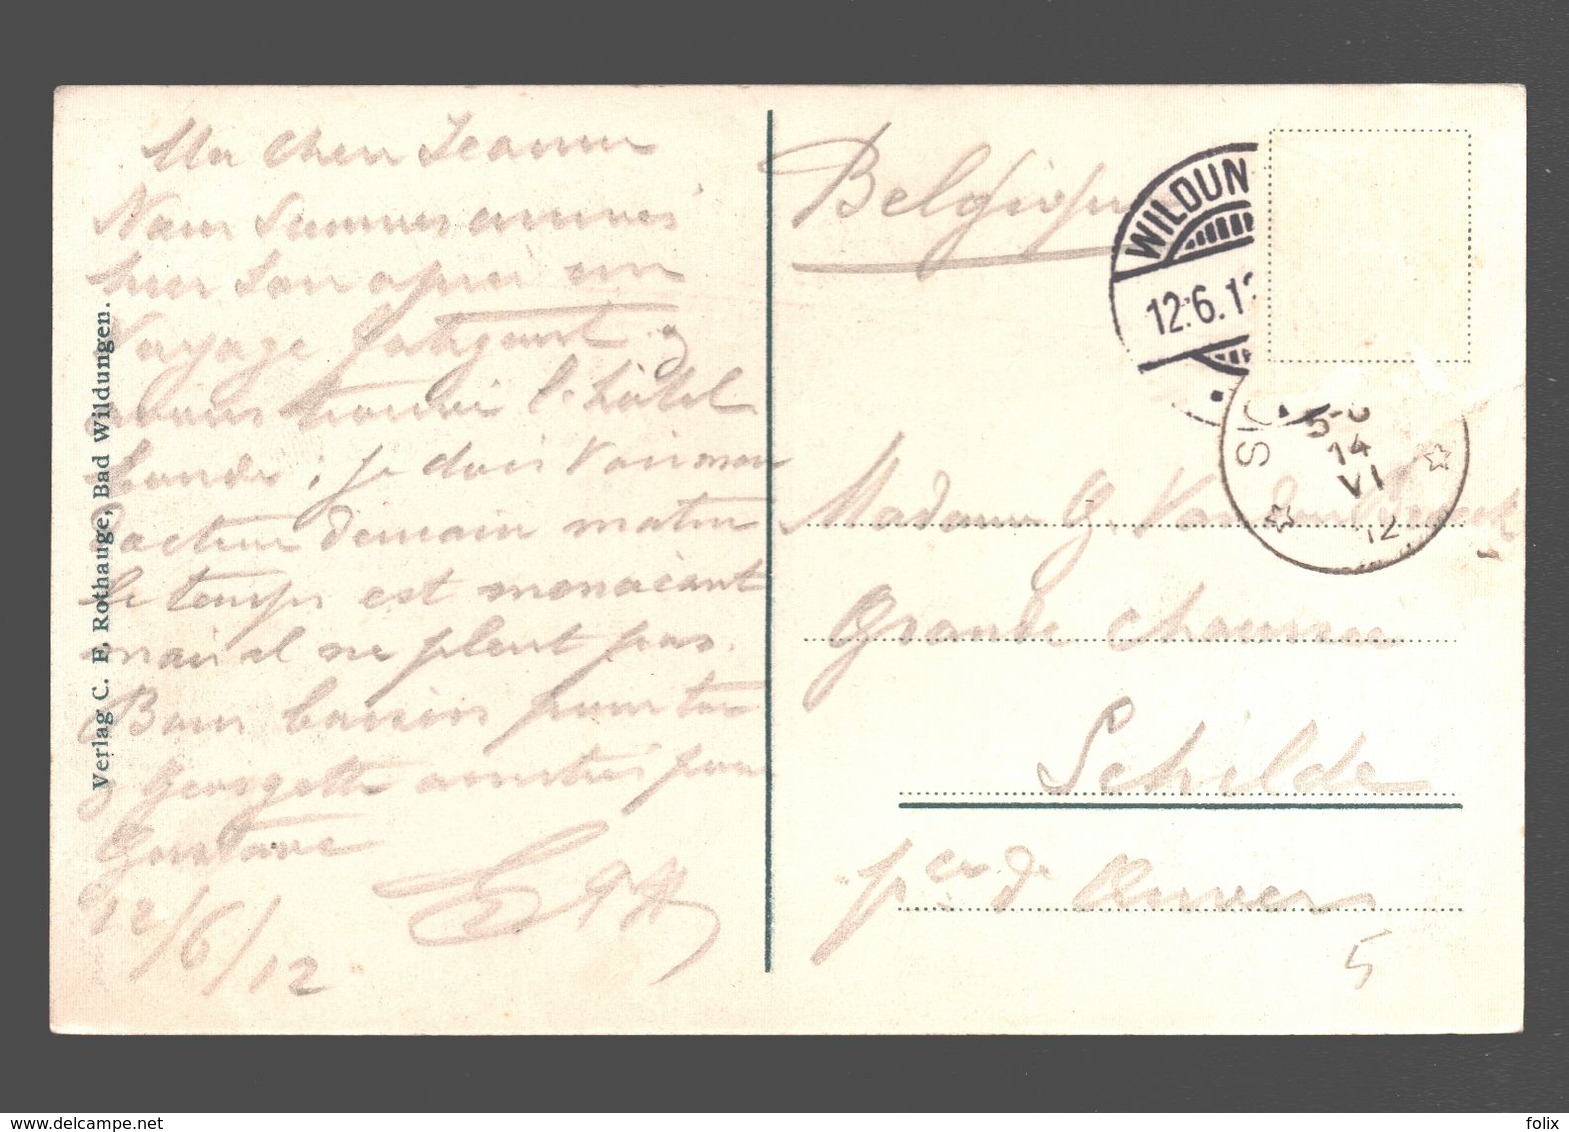 Ma chere Jeanne
Nous sommes arrivés
hier soir apres un
voyage fatigant
avons trouvé l'hôtel
bondé; je dois voir mon
docteur demain matin
le temps est menacant
mais il ne pleut pas.
Bons baisers pour toi
Georgette amitiés pour
Gustave
12/6/12
Verlag C. F. Rothauge, Bad Wildungen.
Belgique
WILDUN
12.6.12
5-6
14
VI
12
Madame G.
Grande chaussée
Schilde
près d'Anvers
5
delcampe.net
folix